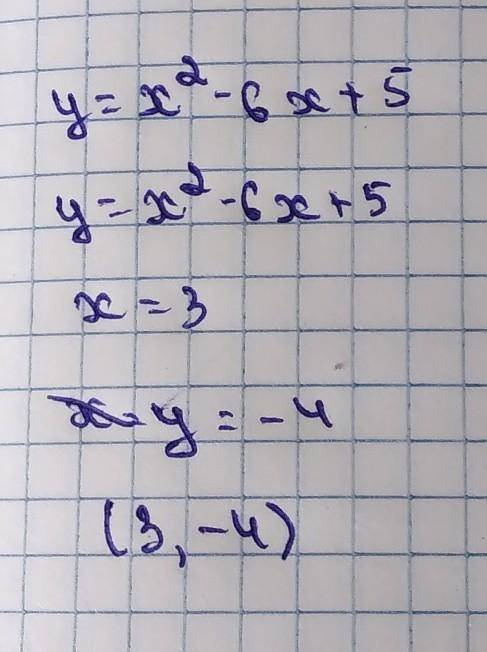 y = x² - 6x + 5
y = x² - 6x + 5
x = 3
y = -4
(3, -4)